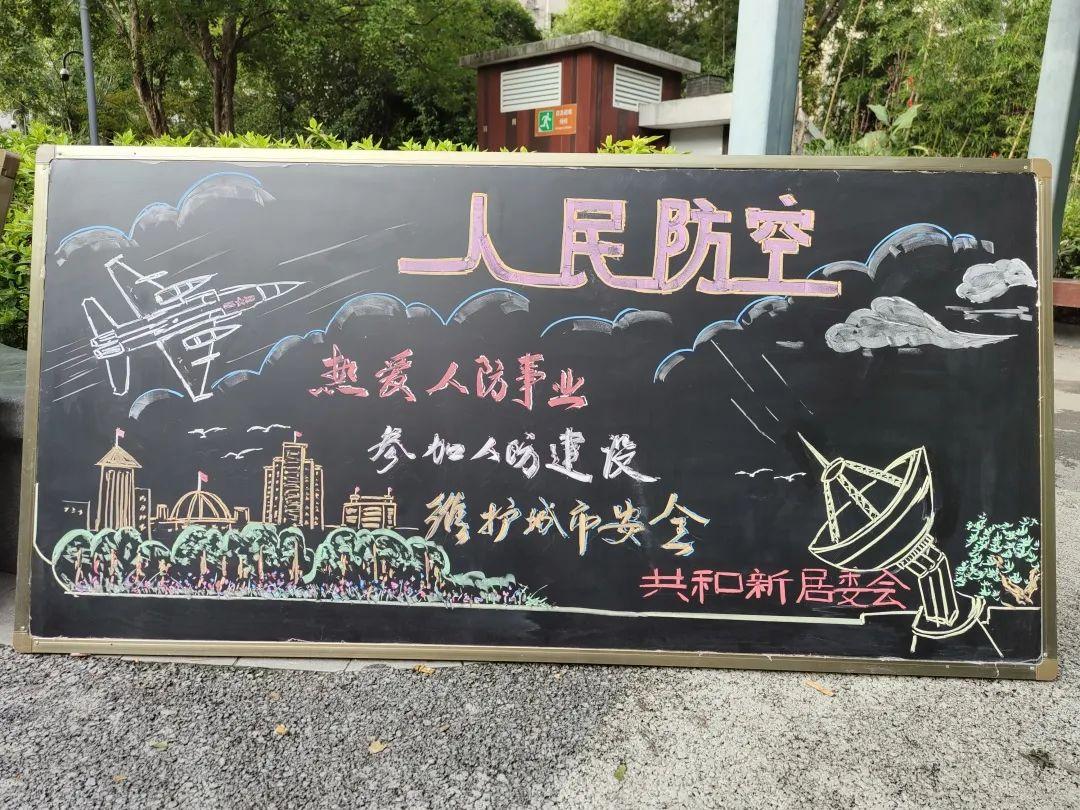 人民防空
热爱人防事业
参加人防建设
维护城市安全
共和新居委会